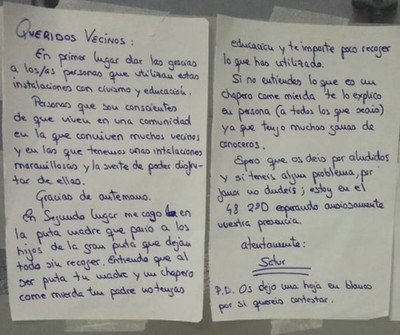 QUERIDOS VECINOS:
En primer lugar dar las gracias
a los/as personas que utilizan estas
instalaciones con civismo y educación.
Personas que son conscientes
de que viven en una comunidad
en la que conviven muchos vecinos
y en las que tenemos unas intalaciones
maravillosas y la suerte de poder disfru-
tar de ellas.
Gracias de antemano.
En Segundo lugar me cago en
la puta madre que parió a los
hijos de la gran puta que dejan
todo sin recoger. Entiendo que al
ser puta tu madre y un chapero
come mierda tu padre no tengas
educación y te importe poco recoger
lo que has utilizado.
Si no entiendes lo que es un
chapero come mierda te lo explico
en persona (a todos los que seais)
ya que tengo muchas ganas de
conoceros.
Espero que os deis por aludidos
y si teneis algun problema, por
favor no dudeis; estoy en el
48 2ºD esperando ansiosamente
vuestra presencia.
atentamente:
Satur
P.D. Os dejo una hoja en blanco
por si quereis contestar.